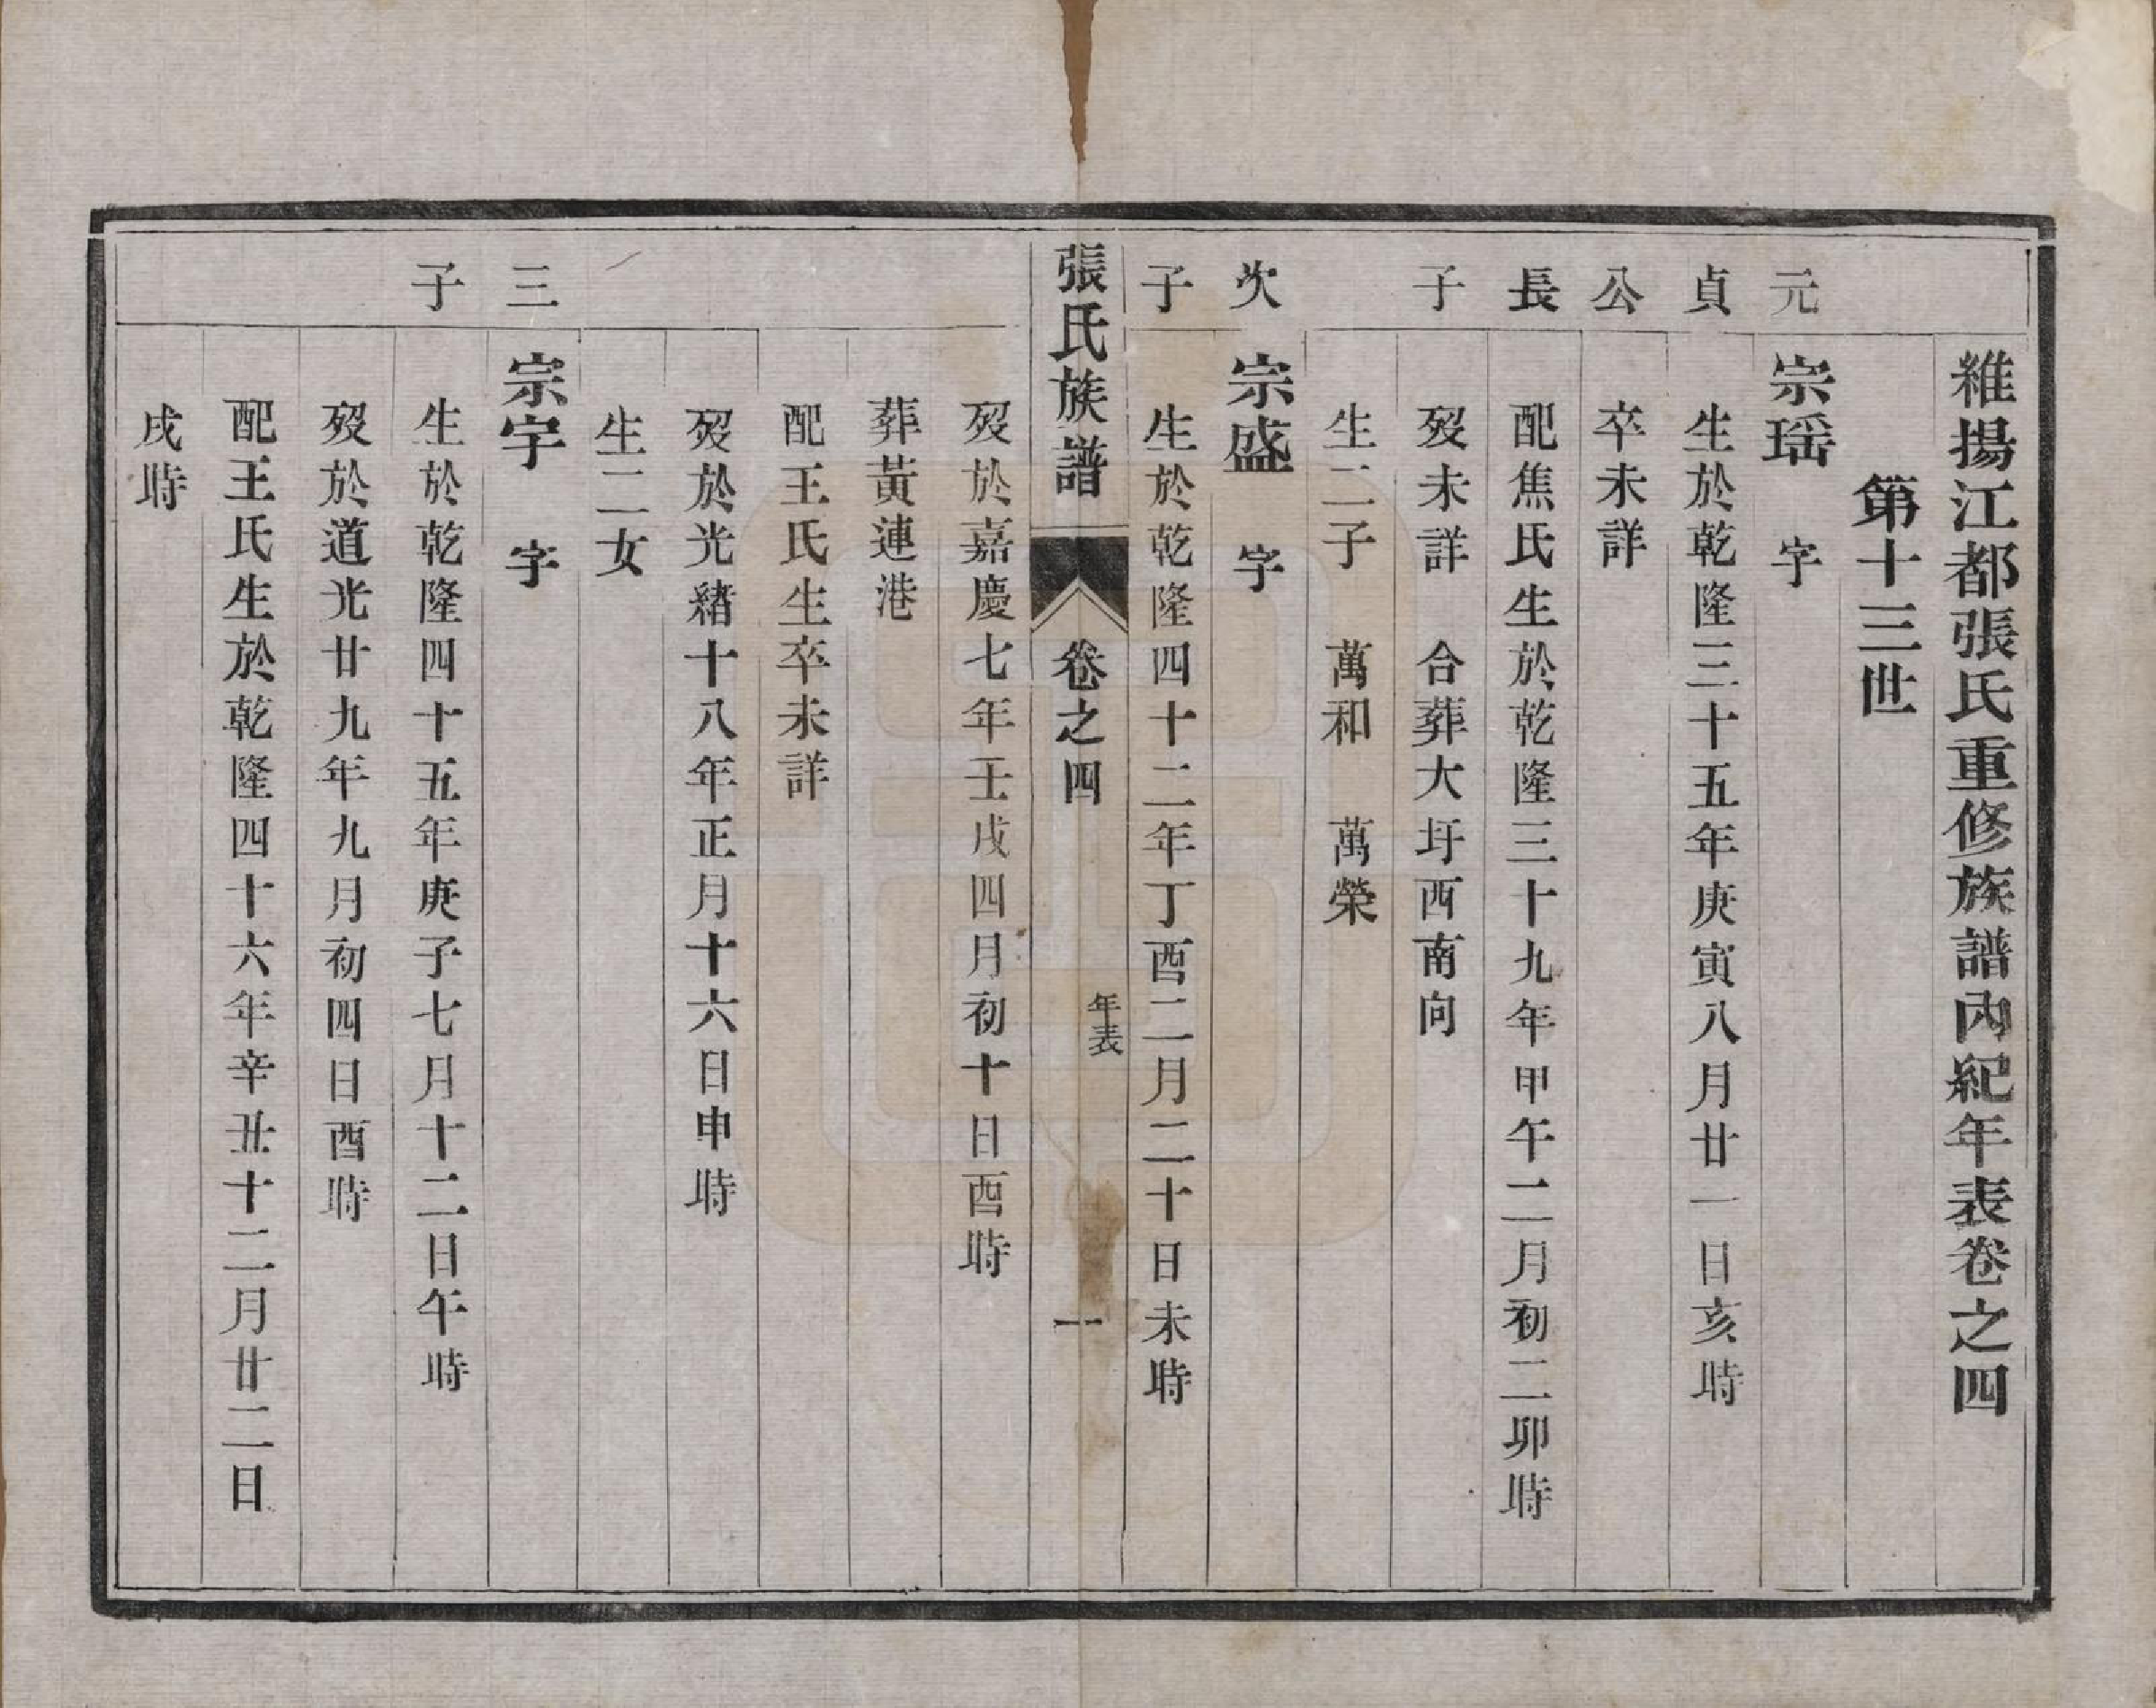 維揚江都張氏重修族譜內紀年表卷之四
第十三世
元貞公長子
宗瑶 字
生於乾隆三十五年庚寅八月廿一日亥時
卒未詳
配焦氏生於乾隆三十九年甲午二月初二卯時
歿未詳 合葬大圩西南向
生二子 萬和 萬榮
次子
宗盛 字
生於乾隆四十二年丁酉二月二十日未時
張氏族譜 卷之四 年表 一
歿於嘉慶七年壬戌四月初十日酉時
葬黃連港
配王氏生卒未詳
歿於光緒十八年正月十六日申時
生二女
三子
宗宇 字
生於乾隆四十五年庚子七月十二日午時
歿於道光廿九年九月初四日酉時
配王氏生於乾隆四十六年辛丑十二月廿二日
戌時